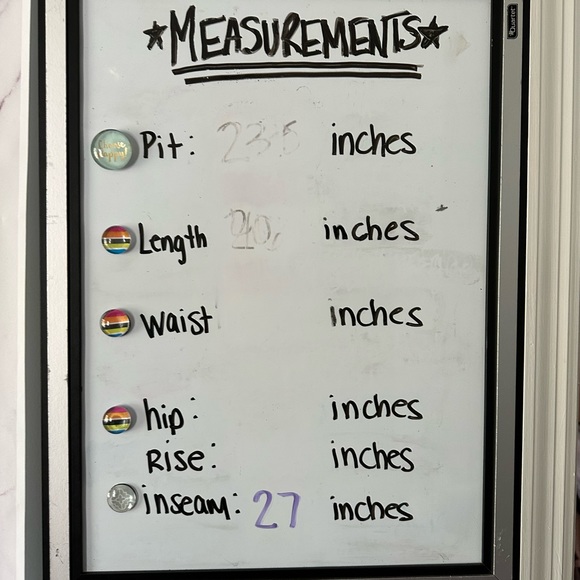 ★MEASUREMENTS★
Quartet
Pit: 23.5 inches
Length inches
Waist inches
hip: inches
Rise: inches
inseam: 27 inches